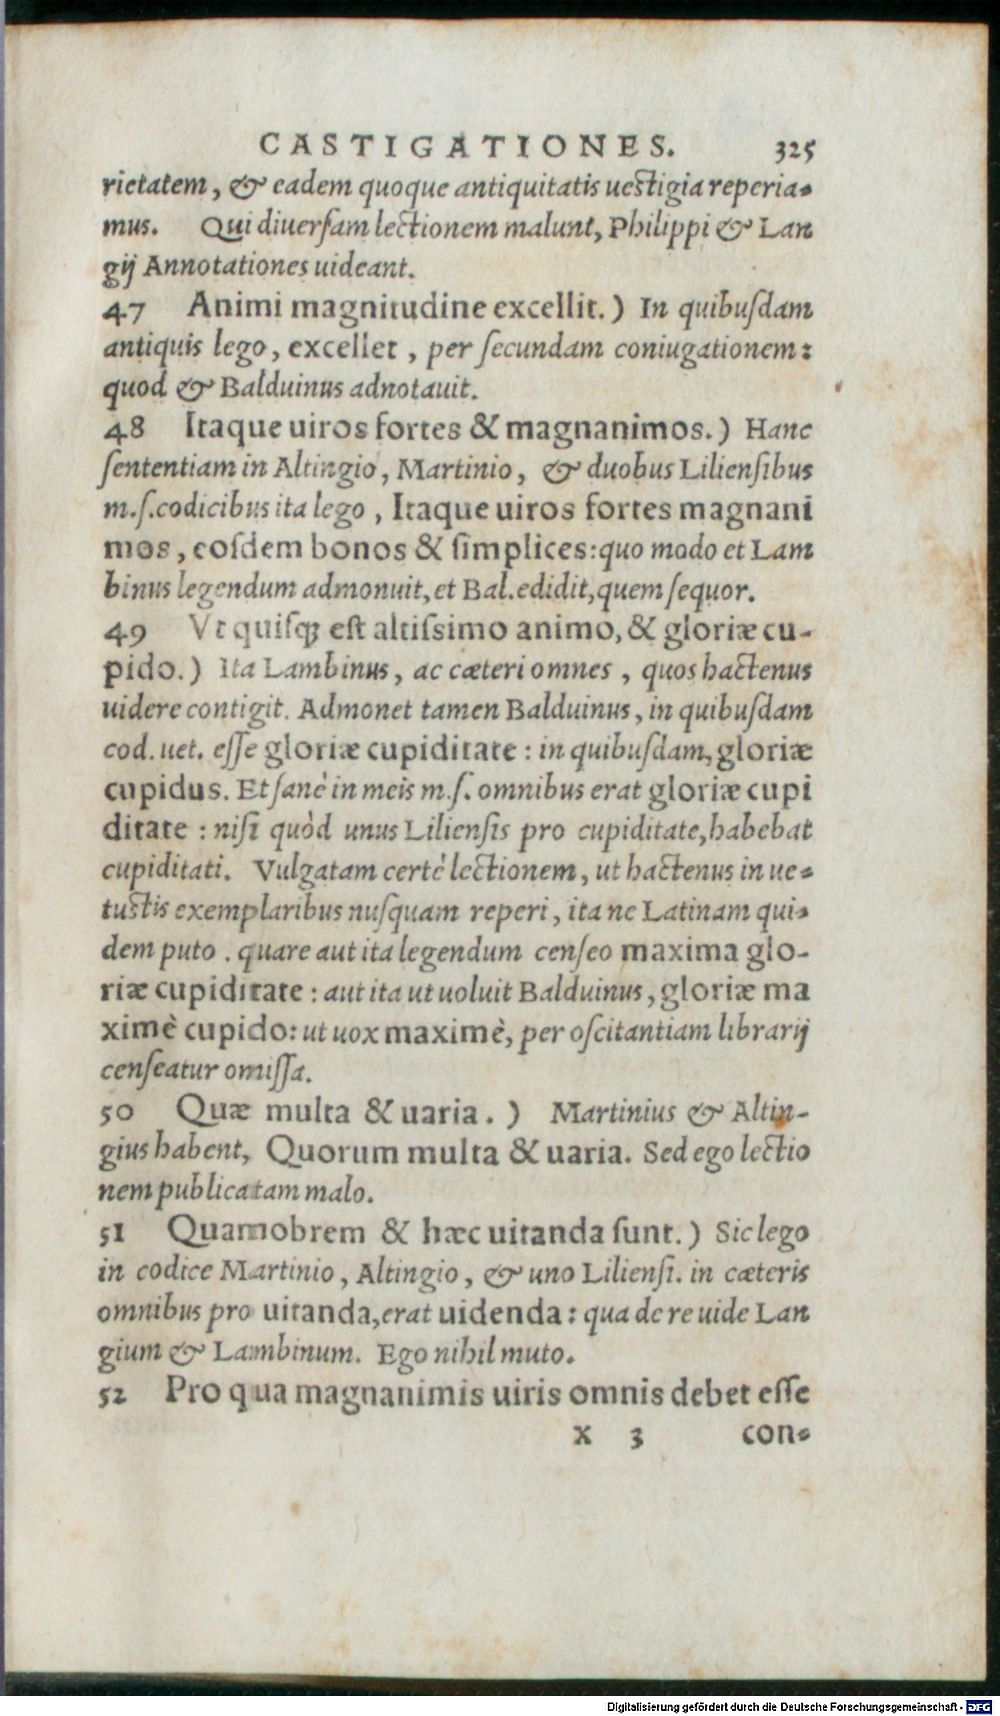 CASTIGATIONES. 325
rietatem, & eadem quoque antiquitatis uestigia reperia-
mus. Qui diuersam lectionem malunt, Philippi & Lan
gij Annotationes uideant.
47 Animi magnitudine excellit.) In quibusdam
antiquis lego, excellet, per secundam coniugationem:
quod & Balduinus adnotauit.
48 Itaque uiros fortes & magnanimos.) Hanc
sententiam in Altingio, Martinio, & duobus Liliensibus
m.s. codicibus ita lego, Itaque uiros fortes magnani
mos, eosdem bonos & simplices: quo modo et Lam
binus legendum admonuit, et Bal. edidit, quem sequor.
49 Vt quisq; est altissimo animo, & gloriæ cu-
pido.) Ita Lambinus, ac cæteri omnes, quos hactenus
uidere contigit. Admonet tamen Balduinus, in quibusdam
cod. uet. esse gloriæ cupiditate: in quibusdam, gloriæ
cupidus. Et sanè in meis m.s. omnibus erat gloriæ cupi
ditate: nisi quòd unus Liliensis pro cupiditate, habebat
cupiditati. Vulgatam certè lectionem, ut hactenus in ue-
tustis exemplaribus nusquam reperi, ita ne Latinam qui-
dem puto. quare aut ita legendum censeo maxima glo-
riæ cupiditate: aut ita ut uoluit Balduinus, gloriæ ma
ximè cupido: ut uox maximè, per oscitantiam librarij
censeatur omissa.
50 Quæ multa & uaria.) Martinius & Altin-
gius habent, Quorum multa & uaria. Sed ego lectio
nem publicatam malo.
51 Quamobrem & hæc uitanda sunt.) Sic lego
in codice Martinio, Altingio, & uno Liliensi. in cæteris
omnibus pro uitanda, erat uidenda: qua de re uide Lan
gium & Lambinum. Ego nihil muto.
52 Pro qua magnanimis uiris omnis debet esse
x 3 con-
Digitalisierung gefördert durch die Deutsche Forschungsgemeinschaft - DFG